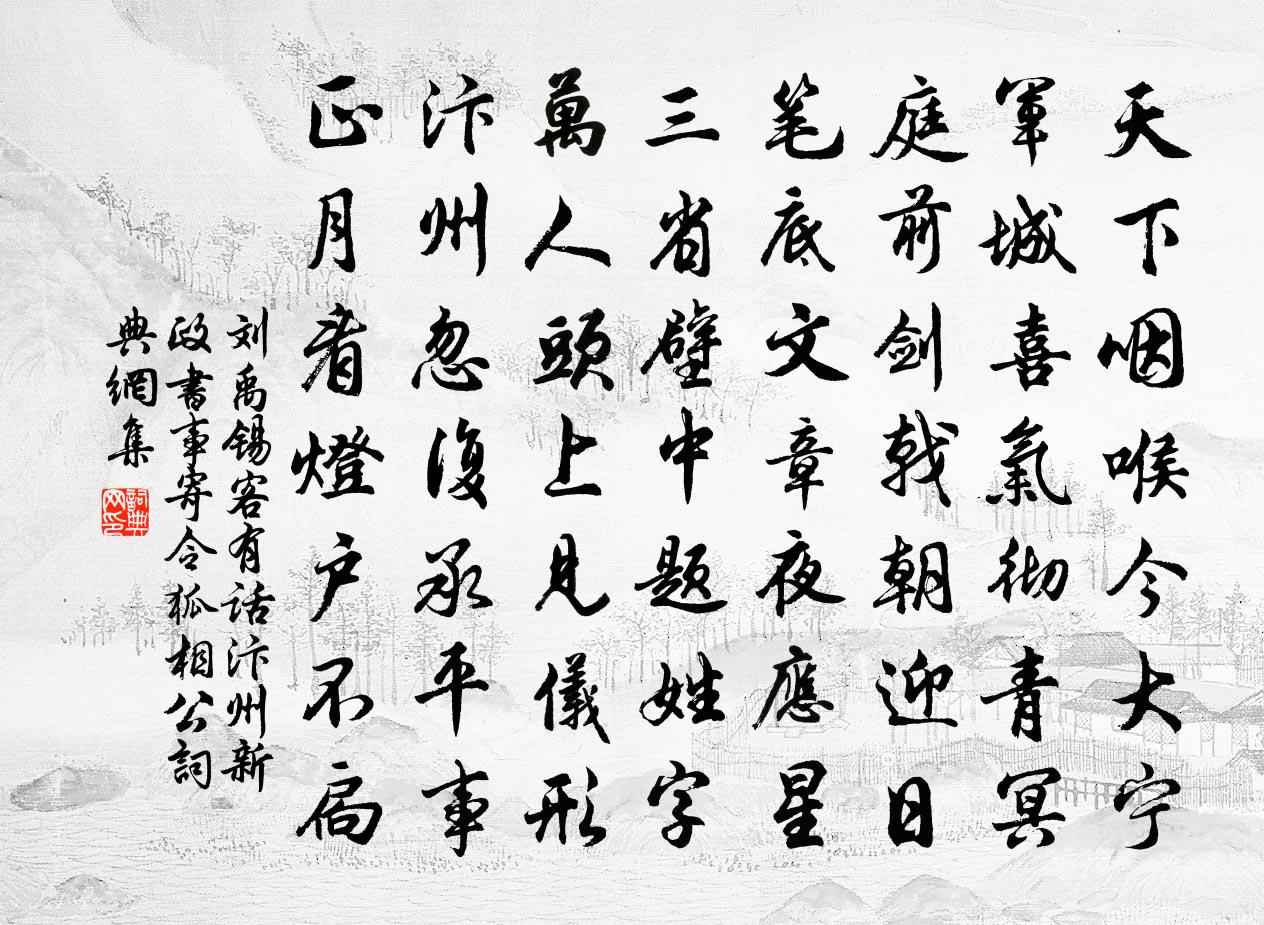 天下咽喉今大宁
軍城喜氣彻青冥
庭前剑戟朝迎日
笔底文章夜應星
三省壁中題姓字
萬人頭上見儀形
汴州忽復承平事
正月看燈户不扃
刘禹锡客有话汴州新
政書事寄令狐相公詞
典網集
詞典网印